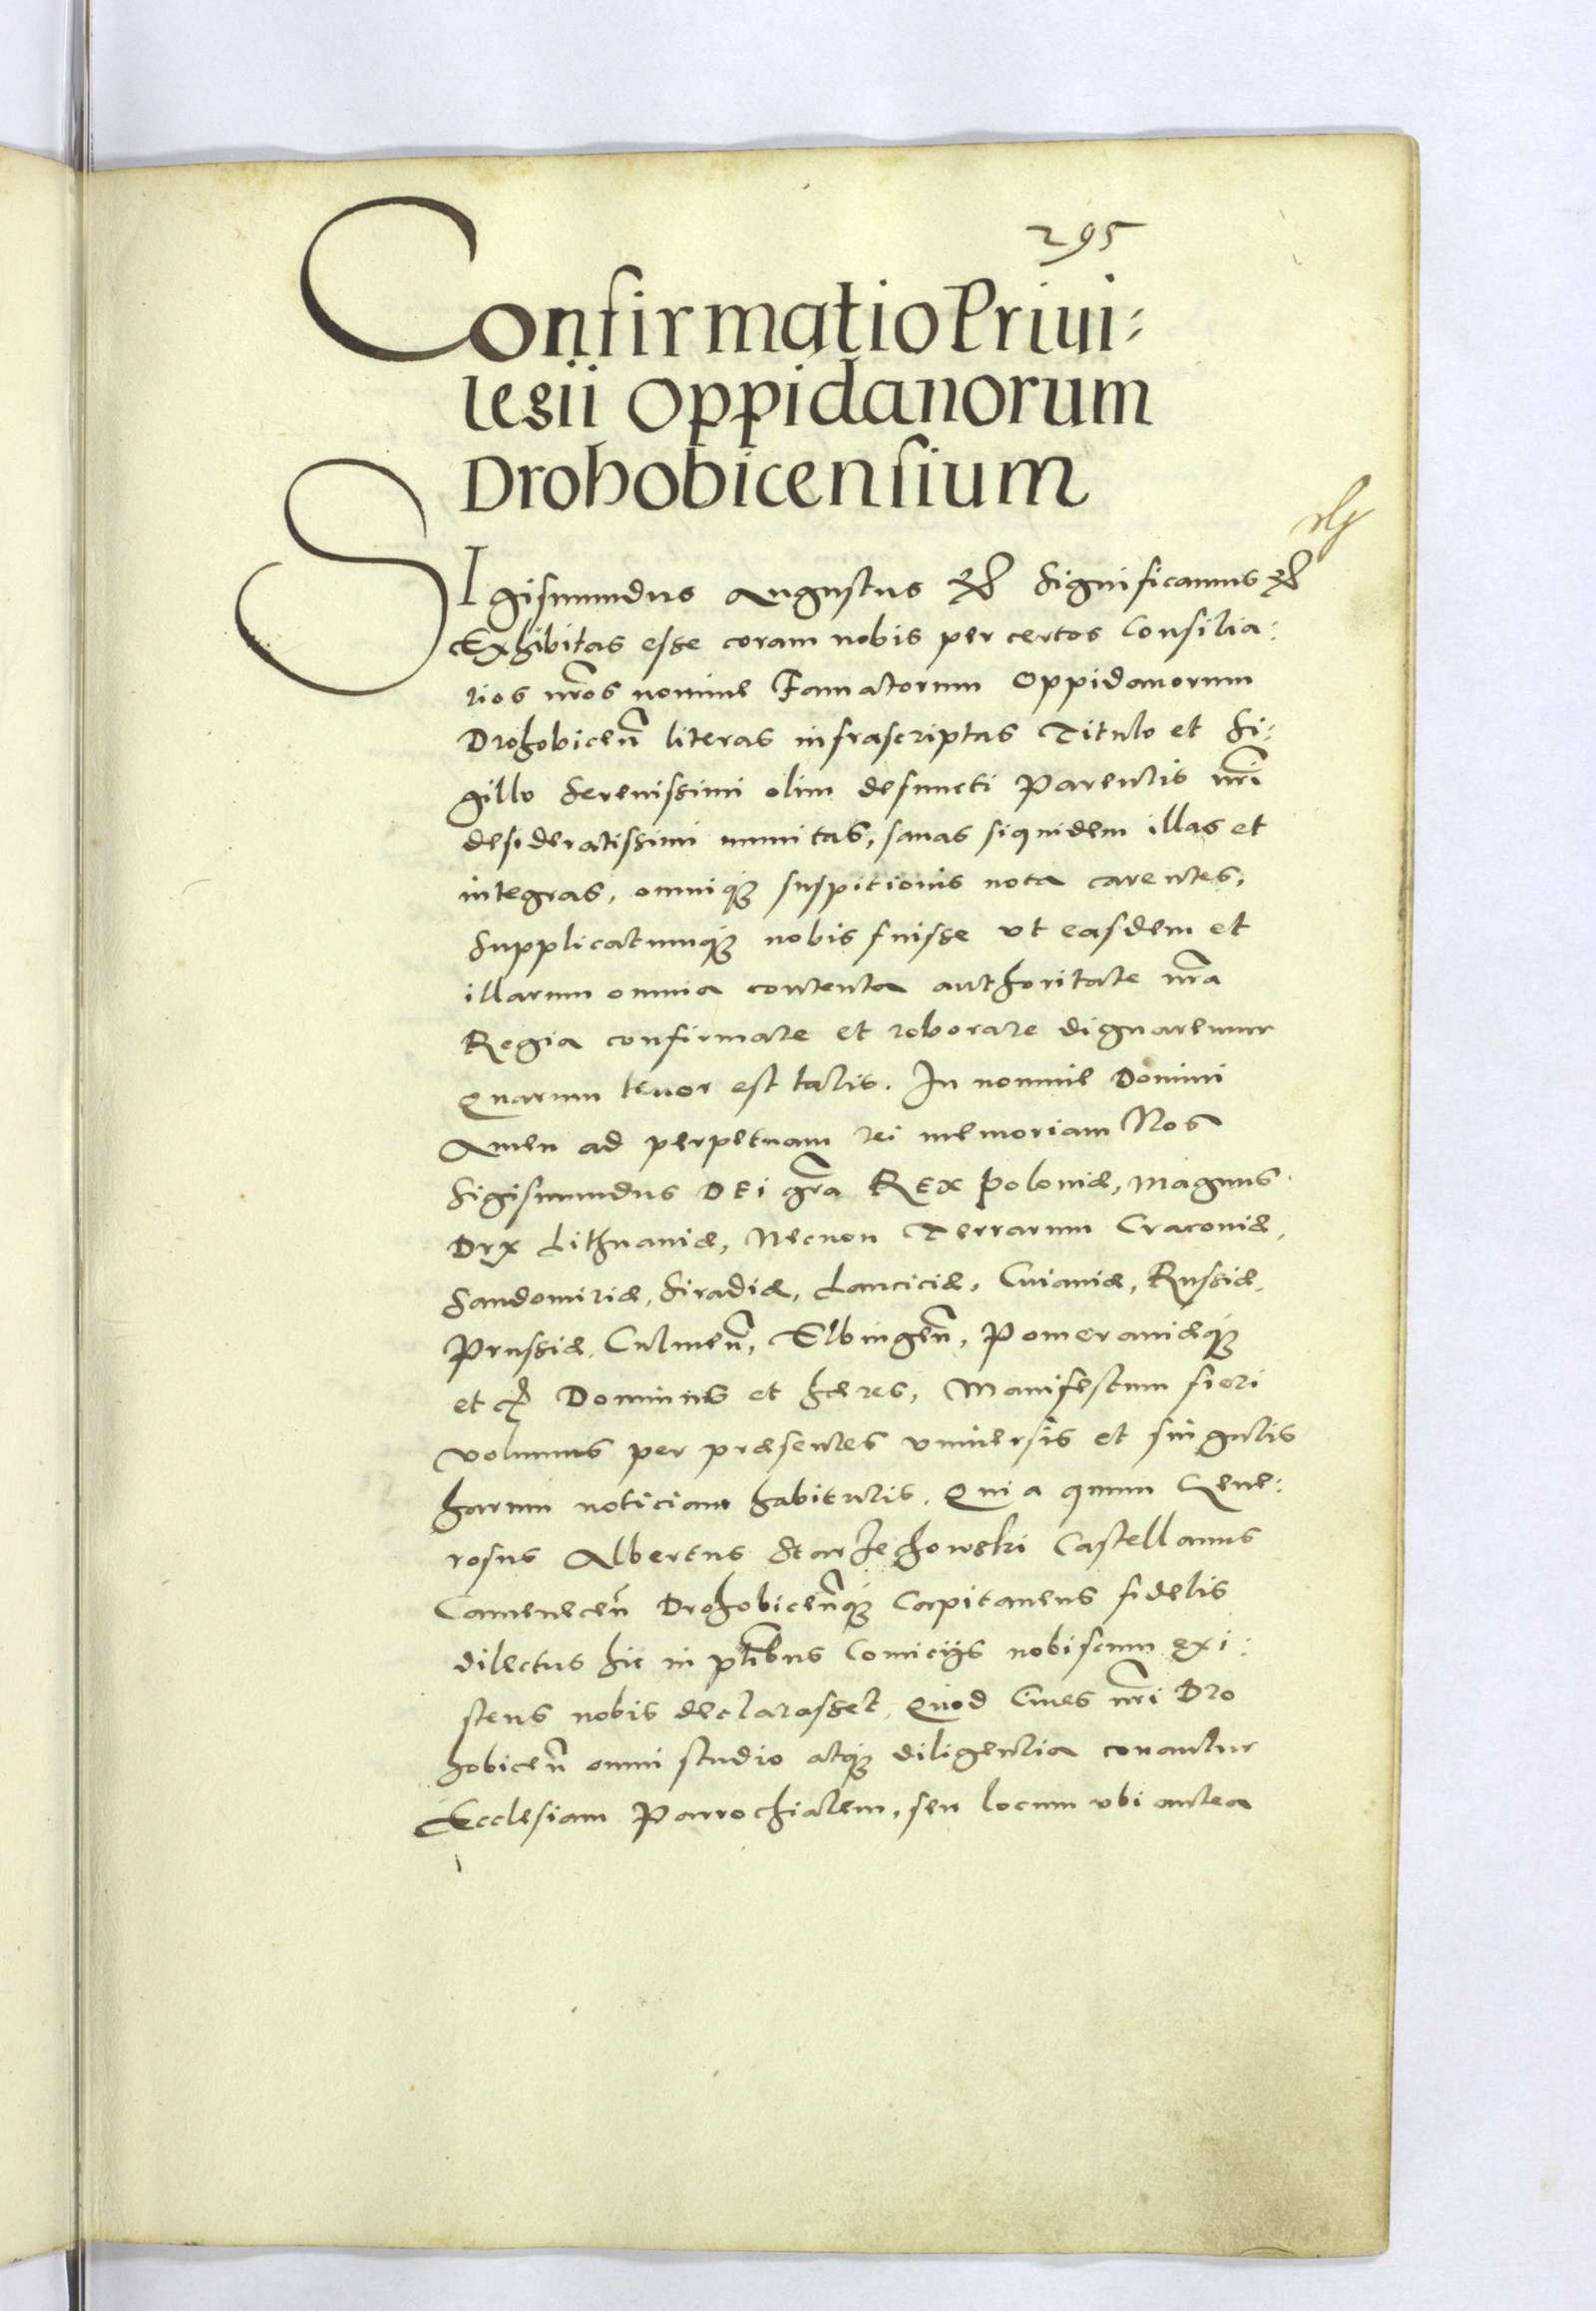 295
Confirmatio Priui:
legii Oppidanorum
Drohobicensium
SIgismundus Augustus etc Significamus etc
Exhibitas esse coram nobis per certos Consilia:
rios nr̃os nomine Famatorum Oppidanorum
Drohobiceñ literas infrascriptas Titulo et Si:
gillo Serenissimi olim defuncti Parentis nr̃i
desideratissimi munitas, sanas siquidem illas et
integras, omniq̃ suspitionis nota carentes,
Supplicatumq̃ nobis fuisse vt easdem et
illarum omnia contenta authoritate nr̃a
Regia confirmare et roborare dignaremur
Quarum tenor est talis. In nomine Domini
Amen ad perpetuam rei memoriam Nos
Sigismundus DEi gr̃a REx Poloniæ, Magnus
Dux Lithuaniæ, Necnon Terrarum Cracouiæ,
Sandomiriæ, Siradiæ, Lanciciæ, Cuiauiæ, Russiæ,
Prussiæ, Culmeñ, Elbingeñ, Pomeraniæq̃
et c̃ Dominus et hæres, Manifestum fieri
volumus per præsentes vniuersis et singulis
harum noticiam habituris. Quia quum Gene:
rosus Albertus Starzechowski Castellanus
Cameneceñ Drohobiceñq̃ Capitaneus fidelis
dilectus hic in pñtibus Comicijs nobiscum exi:
stens nobis declarasset, Quod Ciues nr̃i Dro
hobiceñ omni studio atq̃ diligentia conantur
Ecclesiam Parrochialem, seu locum vbi antea